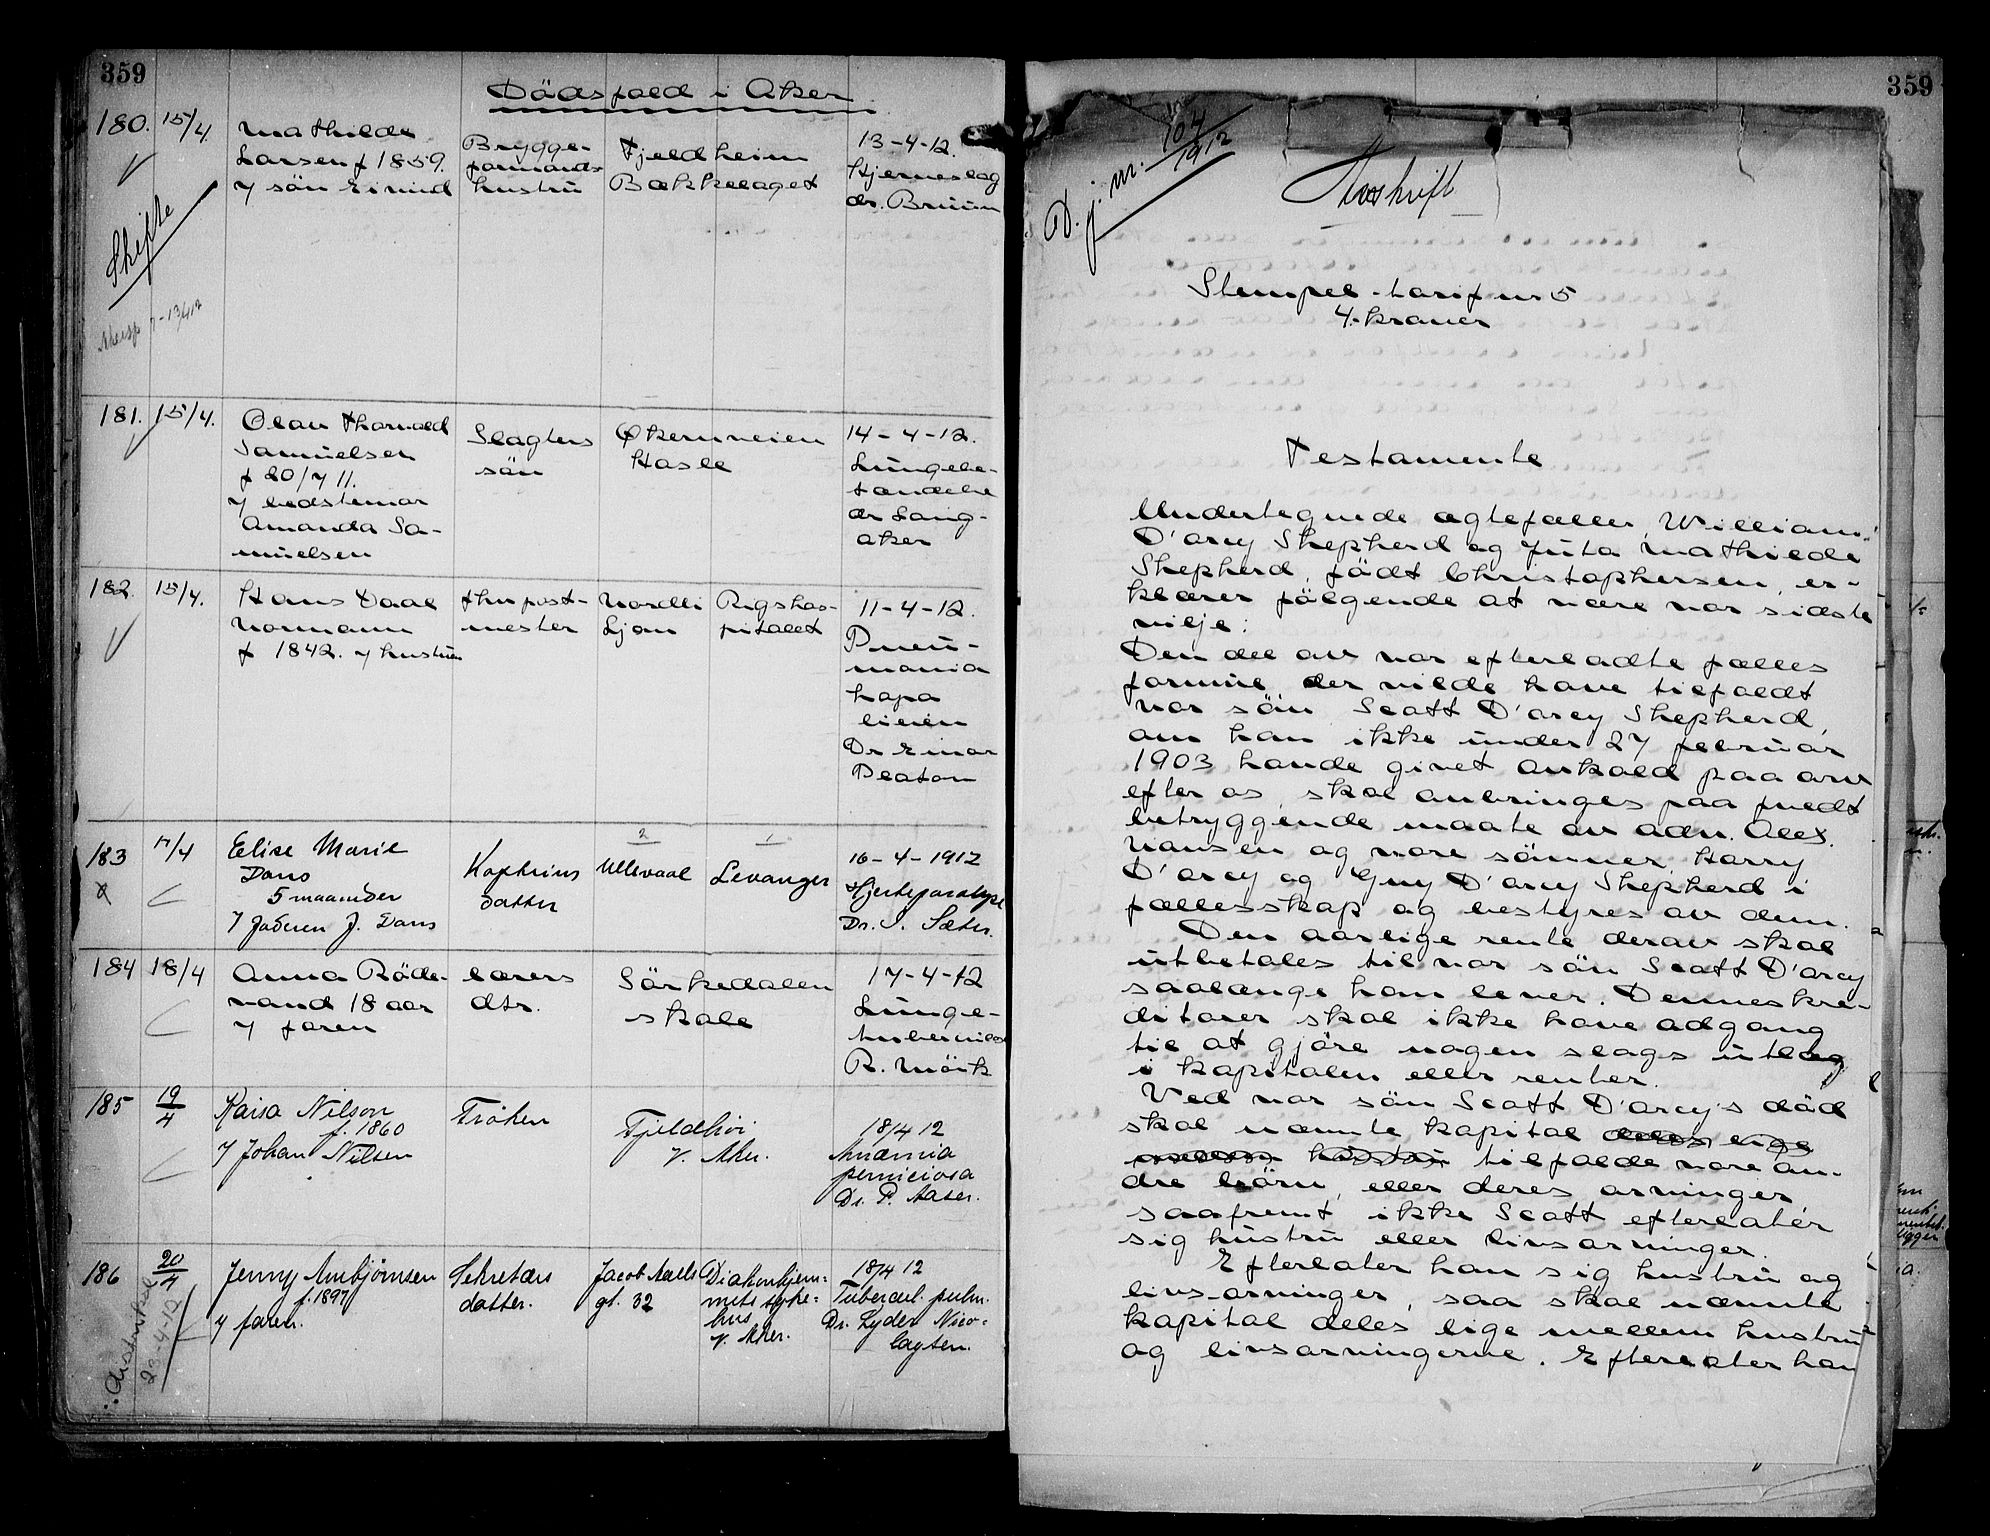 359
Dödsfald i Aker
180. 15/4.
Mathilde
Larsen f 1859.
v/ sön Eivind
Brygge-
formands
hustru
Fjeldheim
Bækkelaget
13-4-12.
Hjerneslag
dr. Bruun
Skifte
181. 15/4.
Olav Thorvald
Samuelsen
f 20/7 11.
v/ bedstemor
Amanda Sa-
muelsen
Slagters
sön
Økernveien
Hasle
14-4-12.
Lungebe-
tændelse
dr Lang-
aker
182. 15/4.
Hans Daae
Normann
f 1842. v/ hustruen
fhv post-
mester
Nordli
Ljan
Rigshos-
pitalet
11-4-12.
Pneu-
monia
Dr Einar
183 17/4
Elise Marie
Dans
5 maaneder
v/ Faderen J. Dans
datter
2
Ullevaal
1
Levanger
16-4-1912
Hjerteparalyse
Dr. S. Sæter.
184 18/4
Anna Röde-
vand 18 aar
v/ faren
lærers
dtr.
Sörkedalen
skole
17-4-12
Lunge-
tuberculos
R. Mörk
185 19/4
Kaisa Nilson
f. 1860
v/ Johan Nilsen
Frøken
Fjeldhøi
v. Aker.
18/4 12
Anæmia
perniciosa
Dr. P. Aaser.
186 20/4
Jenny Arnbjørnsen
f. 1897
v/ faren.
Sekretærs
datter.
Jacob Aalls
gt. 32
Diakonhjem-
mets syke-
hus
v. Aker.
18/4 12
Tubercul. pulm.
Dr. Lyder Nico-
laysen.
23-4-12
359
D. j. nr. 104/1912
Avskrift
Stempel-tarif nr 5
4.- kroner
Testamente
Undertegnede ægtefæller, William
D'arcy Shepherd og Juta Mathilde
Shepherd, födt Christophersen, er-
klærer fölgende at være vor sidste
vilje:
Den del av vor efterladte fælles
formue, der vilde have tilfaldt
vor sön Scott D'arcy Shepherd,
om han ikke under 27 februar
1903 havde givet avkald paa arv
efter os, skal anbringes paa fuldt
betryggende maate av adv. Alex.
Nansen og vore sönner Harry
D'arcy og Guy D'arcy Shepherd i
fællesskap og bestyres av dem.
Den aarlige rente derav skal
utbetales til vor sön Scott D'arcy
saalænge han lever. Dennes kre-
ditorer skal ikke have adgang
til at gjöre nogen slags utlæg
i kapitalen eller renter.
Ved vor sön Scott D'arcy's död
skal nævnte kapital deles lige
mellem hustru tilfalde vore an-
dre börn, eller deres arvinger
saafremt ikke Scott efterlater
sig hustru eller livsarvinger.
Efterlater han sig hustru og
livsarvinger, saa skal nævnte
kapital deles lige mellem hustru
og livsarvingerne. Efterlater han